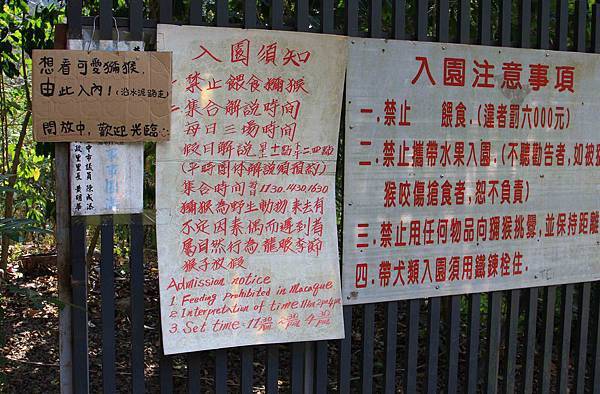 想看可愛獼猴,
由此入內!(沿水泥路走)
開放中,歡迎光臨
中市議員 陳成添
里里長 黃明華
入園須知
一 禁止餵食獼猴
二 集合解說時間
每日三場時間
假日解說 早上十一點下午二四點
(平時團体解說須預約)
集合時間 11:30. 14:30. 16:30
獼猴為野生動物 來去有
不定因素,偶而遇到者
屬自然行為 龍眼季節
猴子放假
Admission notice
1. Feeding prohibited in Macaque
2. Interpretation of time 11am 2pm 4pm
3. Set time: 11點 2點 4點
入園注意事項
一. 禁止 餵食.(違者罰六000元)
二. 禁止攜帶水果入園.(不聽勸告者,如被
猴咬傷搶食者,恕不負責)
三. 禁止用任何物品向獼猴挑釁,並保持距離
四. 帶犬類入園須用鐵鍊栓住.